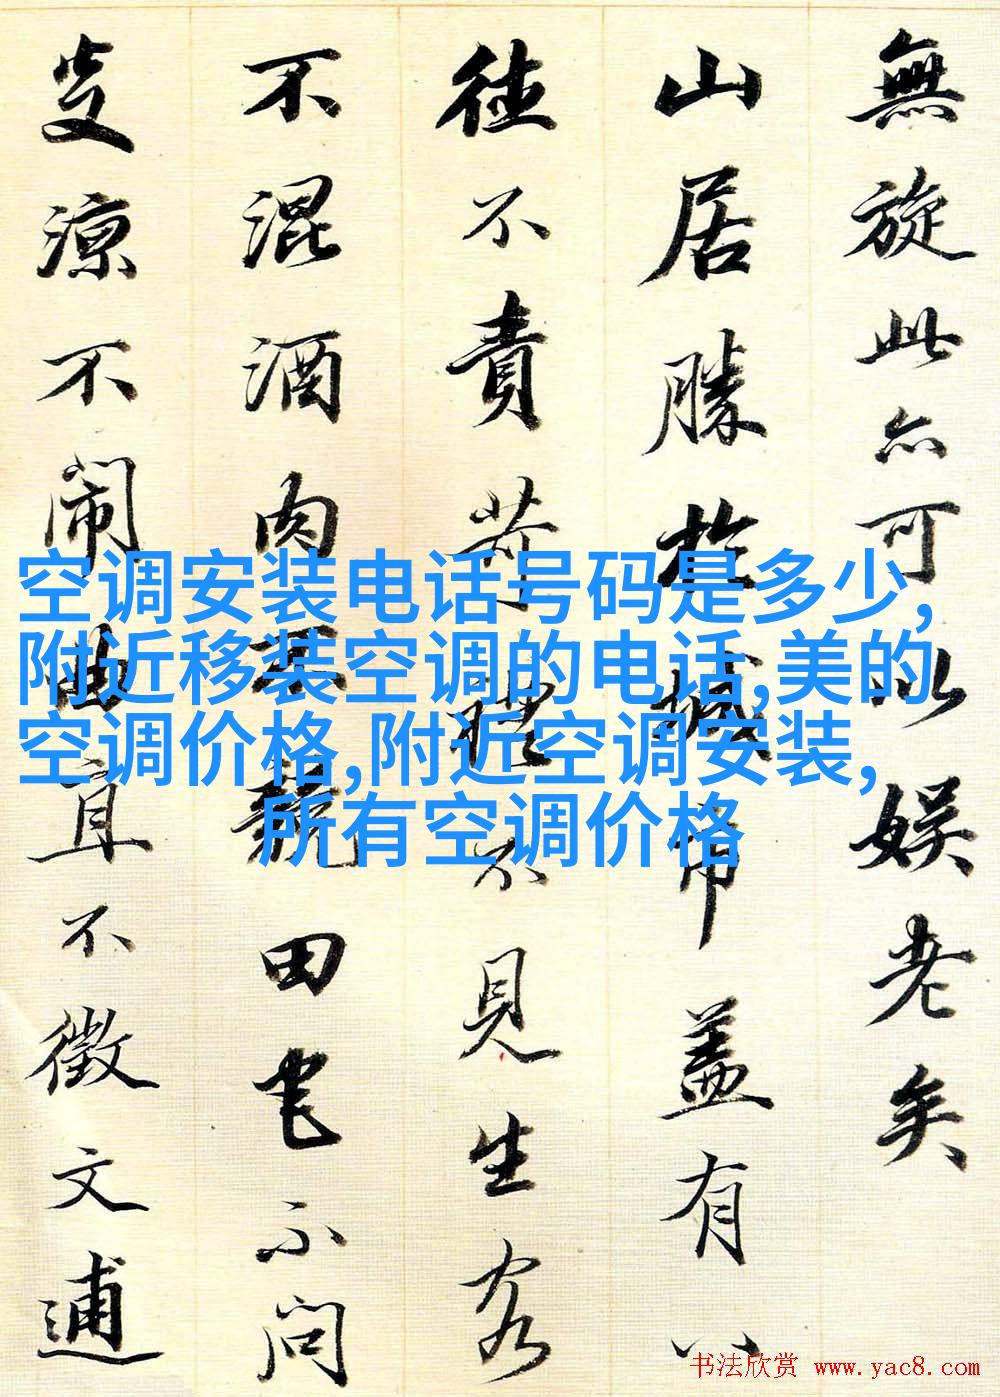 無旋此亦可以娱老矣
山居勝於城市蓋有八
徃不責苛禮不見生客
不混酒肉不競田宅不問
炎凉不闹曲直不徵文逋
空调安装电话号码是多少,
附近移装空调的电话,美的
空调价格,附近空调安装,
所有空调价格
书法欣赏 www.yac8.com